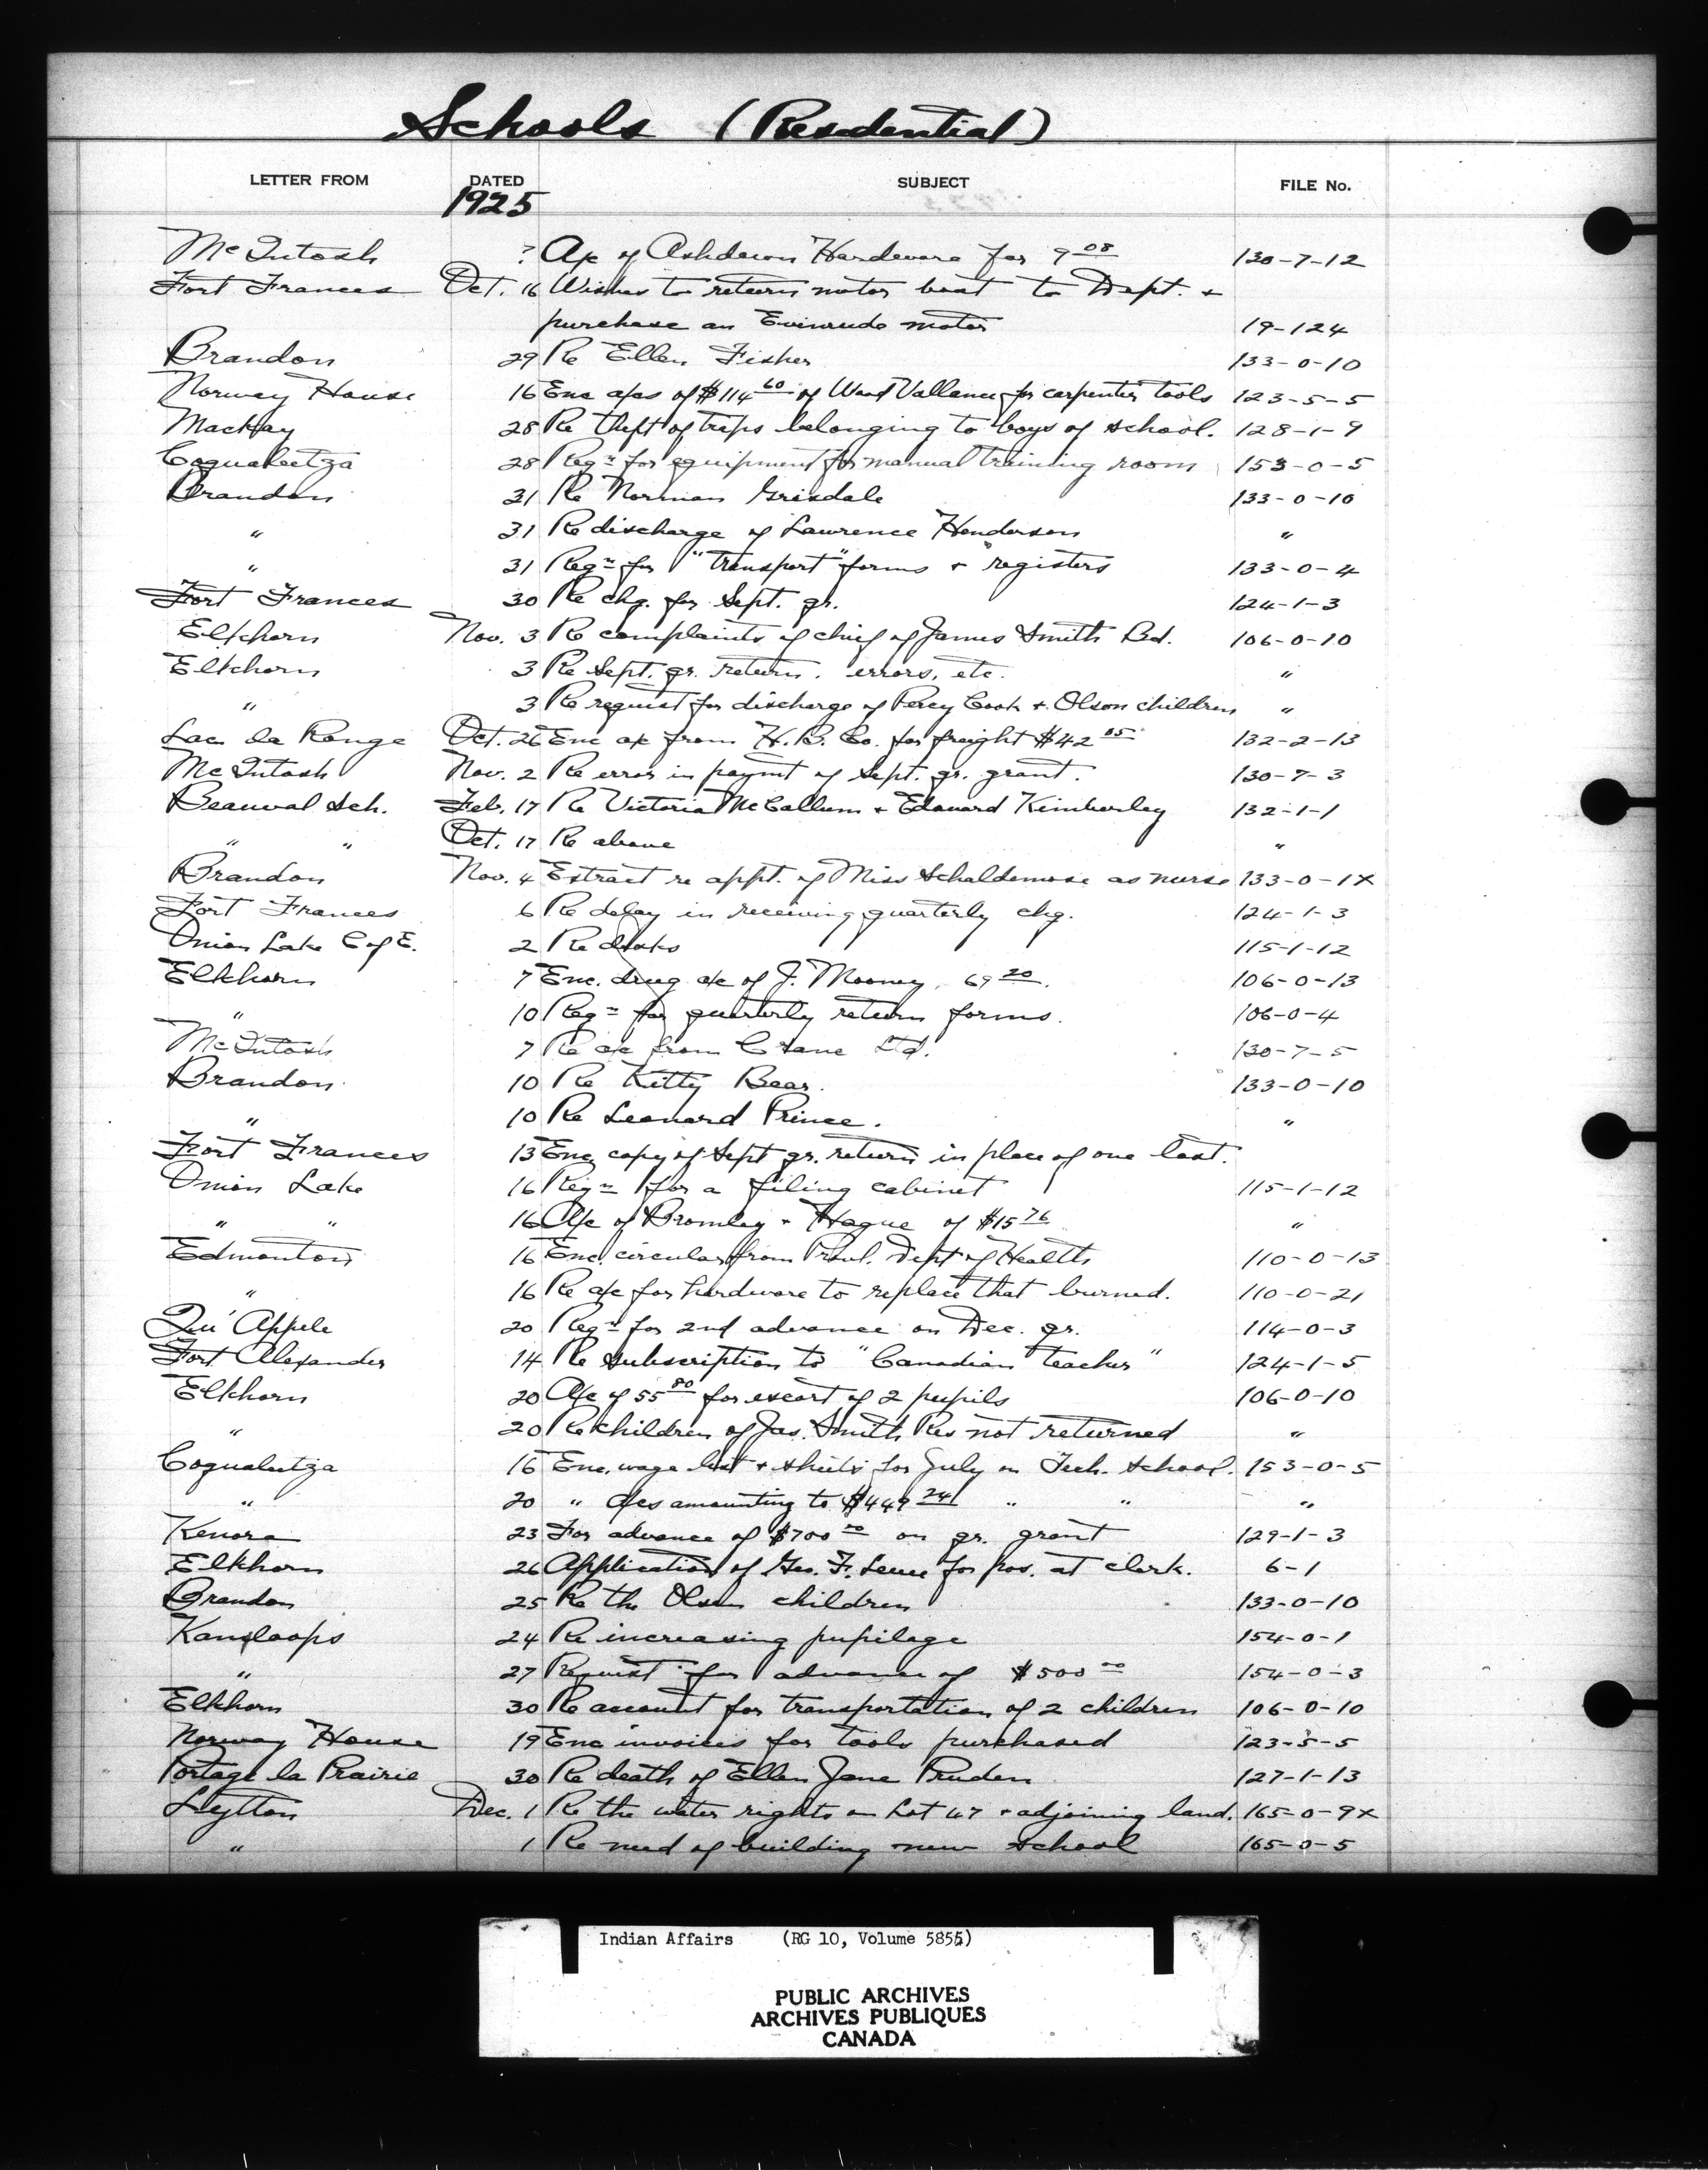 Schools (Residential)
LETTER FROM DATED SUBJECT FILE No.
1925
McIntosh ? A/c of Ashdown Hardware for 9 08 130-7-12
Fort Frances Oct. 16 Wishes to return motor boat to Dept. +
purchase an Evinrude motor 19-124
Brandon 29 Re Ellen Fisher 133-0-10
Norway House 16 Enc a/cs of $114 60 of Wood Vallance for carpenter tools 123-5-5
MacKay 28 Re theft of traps belonging to boys of school. 128-1-9
Coqualeetza 28 Reqn for equipment for manual training room 153-0-5
Brandon 31 Re Norman Grisdale 133-0-10
" 31 Re discharge of Lawrence Henderson "
" 31 Reqn for "transport" forms + "registers 133-0-4
Fort Frances 30 Re chq. for Sept. qr. 124-1-3
Elkhorn Nov. 3 Re complaints of chief of James Smith Bd. 106-0-10
Elkhorn 3 Re Sept. qr. return. errors, etc. "
" 3 Re request for discharge of Percy Cook + Olson children "
Lac la Ronge Oct. 26 Enc a/c from H.B. Co. for freight $42 05 132-2-13
McIntosh Nov. 2 Re error in paymt of Sept. qr. grant. 130-7-3
Beauval Sch. Feb. 17 Re Victoria McCallum + Edouard Kimberley 132-1-1
" " Oct. 17 Re above "
Brandon Nov. 4 Extract re appt. of Miss Schaldemose as nurse 133-0-1X
Fort Frances 6 Re delay in receiving quarterly chq. 124-1-3
Onion Lake C of E. 2 Re desks 115-1-12
Elkhorn 7 Enc. drug a/c of J. Mooney, 69 20. 106-0-13
" 10 Reqn for quarterly return forms. 106-0-4
McIntosh 7 Re a/c from Crane Ltd. 130-7-5
Brandon 10 Re Kitty Bear. 133-0-10
" 10 Re Leonard Prince. "
Fort Frances 13 Enc copy of Sept qr. return in place of one lost.
Onion Lake 16 Reqn for a filing cabinet 115-1-12
" " 16 A/c of Bromley + Hague of $15 76 "
Edmonton 16 Enc. circular from Provl. Dept of Health 110-0-13
" 16 Re a/c for hardware to replace that burned. 110-0-21
Qu'Appele 20 Reqn for 2nd advance on Dec. qr. 114-0-3
Fort Alexander 14 Re subscription to "Canadian Teacher" 124-1-5
Elkhorn 20 A/c of 55 80 for escort of 2 pupils 106-0-10
" 20 Re children of Jas. Smith Res not returned "
Coqualeetza 16 Enc. wage list + sheets for July on Tech. School. 153-0-5
" 20 " a/cs amounting to $449 24 " " "
Kenora 23 For advance of $700 00 on qr. grant 129-1-3
Elkhorn 26 Application of Geo. F. for pos. at clerk. 6-1
Brandon 25 Re the Olson children 133-0-10
Kamloops 24 Re increasing pupilage 154-0-1
" 27 Request for advance of $500 00 154-0-3
Elkhorn 30 Re account for transportation of 2 children 106-0-10
Norway House 19 Enc invoices for tools purchased 123-5-5
Portage la Prairie 30 Re death of Ellen Jane Pruden 127-1-13
Lytton Dec. 1 Re the water rights on Lot 47 + adjoining land. 165-0-9X
" 1 Re need of building new school 165-0-5
Indian Affairs (RG 10, Volume 5855)
PUBLIC ARCHIVES
ARCHIVES PUBLIQUES
CANADA